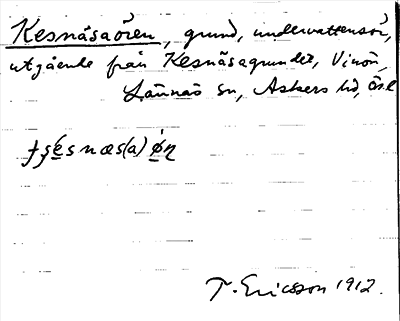 Kesnäsaören, grund, undervattensör,
utgående från Kesnäsagrundet, Vinön,
Lännäs sn, Askers hd, Örl
T. Ericsson 1912.